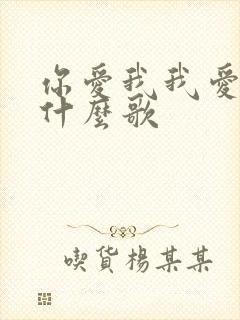 你愛我我愛
什麼歌
喫貨楊某某